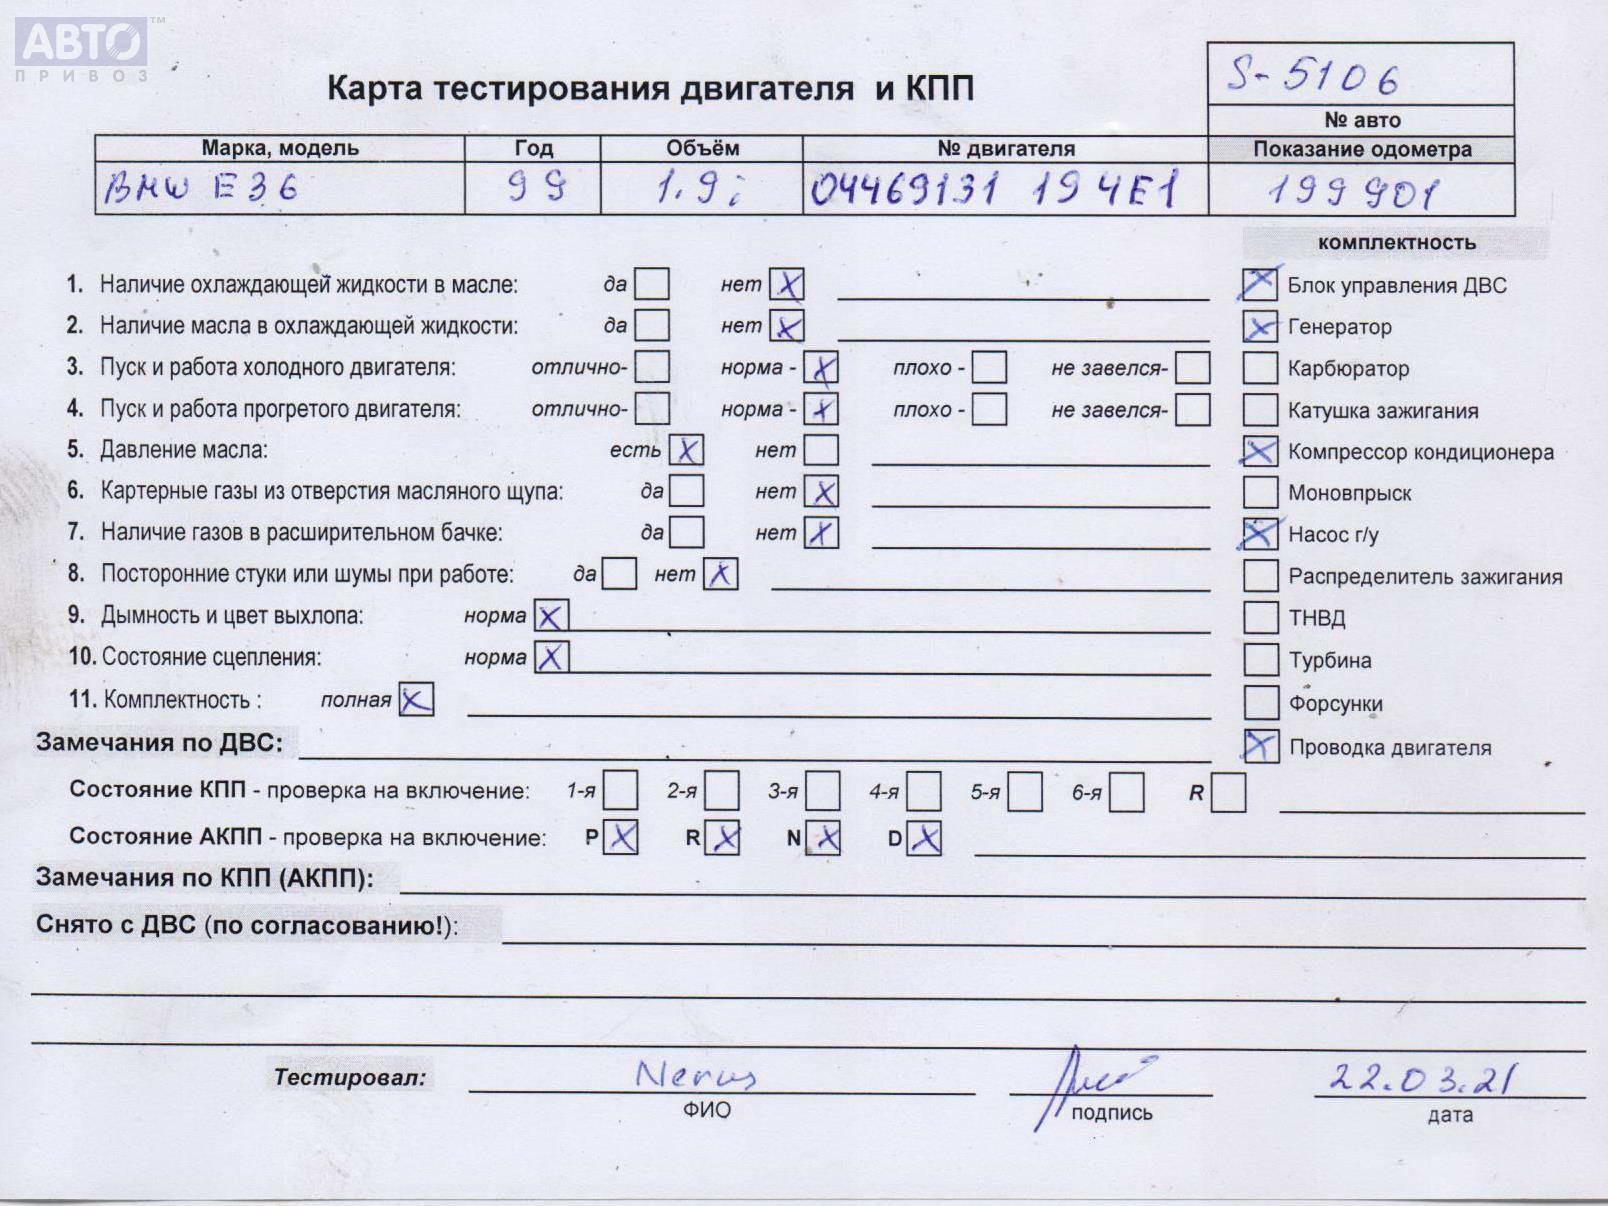 АВТО™
ПРИВОЗ
Карта тестирования двигателя и КПП
S-5106
№ авто
Марка, модель Год Объём № двигателя Показание одометра
BMW E36 99 1.9i 04469131 19 4E1 199901
комплектность
1. Наличие охлаждающей жидкости в масле: да нет X X Блок управления ДВС
2. Наличие масла в охлаждающей жидкости: да нет X X Генератор
3. Пуск и работа холодного двигателя: отлично- норма - X плохо - не завелся- Карбюратор
4. Пуск и работа прогретого двигателя: отлично- норма - X плохо - не завелся- Катушка зажигания
5. Давление масла: есть X нет X Компрессор кондиционера
6. Картерные газы из отверстия масляного щупа: да нет X Моновпрыск
7. Наличие газов в расширительном бачке: да нет X X Насос г/у
8. Посторонние стуки или шумы при работе: да нет X Распределитель зажигания
9. Дымность и цвет выхлопа: норма X ТНВД
10. Состояние сцепления: норма X Турбина
11. Комплектность : полная X Форсунки
Замечания по ДВС: X Проводка двигателя
Состояние КПП - проверка на включение: 1-я 2-я 3-я 4-я 5-я 6-я R
Состояние АКПП - проверка на включение: P X R X N X D X
Замечания по КПП (АКПП):
Снято с ДВС (по согласованию!):
Тестировал: Nerus 22.03.21
ФИО подпись дата